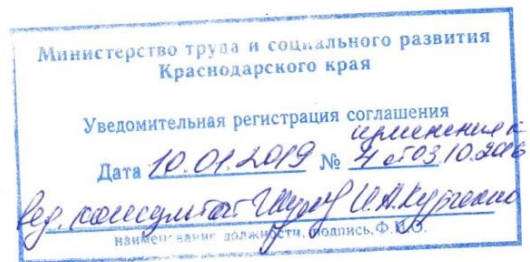 Министерство труда и социального развития
Краснодарского края
Уведомительная регистрация соглашения
изменения к
Дата 10.01.2019 № 4 от 03.10.2016
вед. консультант И.А.Курченко
наименование должности, подпись, Ф.И.О.